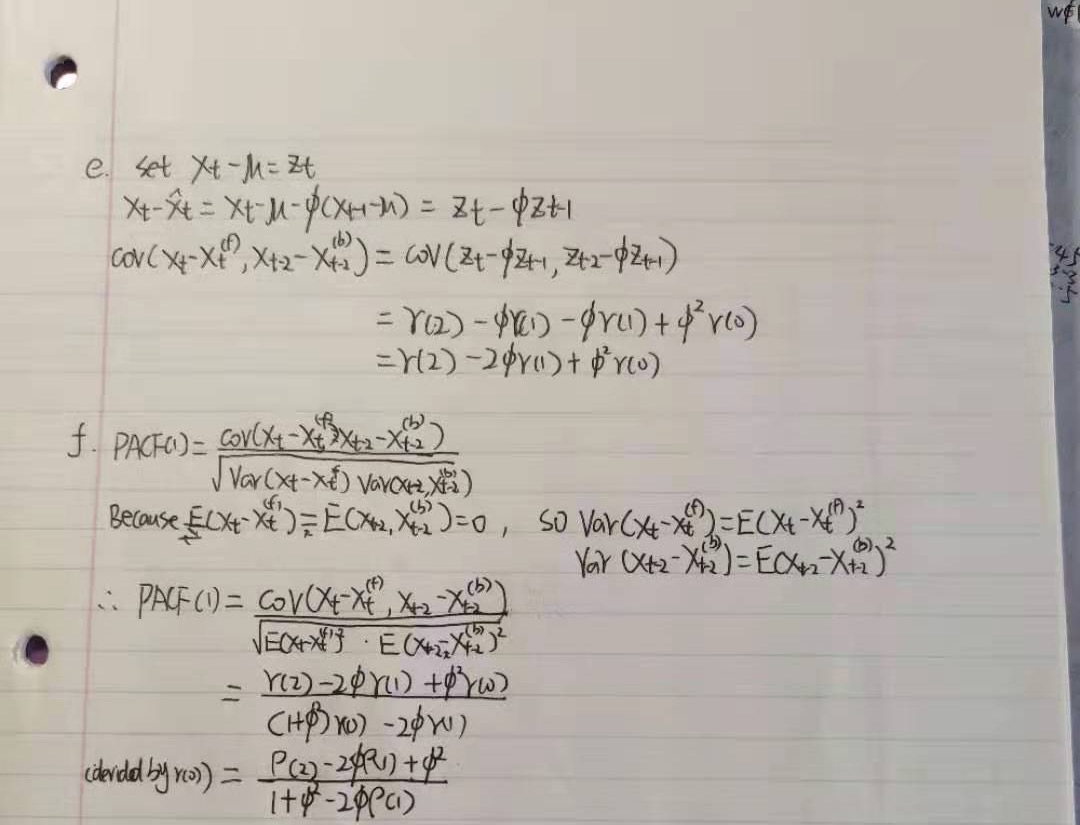 e. set Xt-μ=Zt
Xt-X̂t = Xt-μ-ϕ(Xt-1-μ) = Zt-ϕZt-1
cov(Xt-Xt^(f), Xt-2-Xt-2^(b)) = cov(Zt-ϕZt-1, Zt-2-ϕZt-1)
= r(2)-ϕr(1)-ϕr(1)+ϕ²r(0)
= r(2)-2ϕr(1)+ϕ²r(0)
f. PACF(1) = cov(Xt-Xt^(f), Xt-2-Xt-2^(b)) / √Var(Xt-Xt^f) Var(Xt-2, Xt-2^(b))
Because E(Xt-Xt^(f)) = E(Xt-2, Xt-2^(b)) = 0, so Var(Xt-Xt^(f)) = E(Xt-Xt^(f))²
Var(Xt-2-Xt-2^(b)) = E(Xt-2-Xt-2^(b))²
∴ PACF(1) = cov(Xt-Xt^(f), Xt-2-Xt-2^(b)) / √E(Xt-Xt^(f))² · E(Xt-2-Xt-2^(b))²
= r(2)-2ϕr(1)+ϕ²r(0) / (1+ϕ²)r(0)-2ϕr(1)
(devided by r(0)) = ρ(2)-2ϕρ(1)+ϕ² / 1+ϕ²-2ϕρ(1)